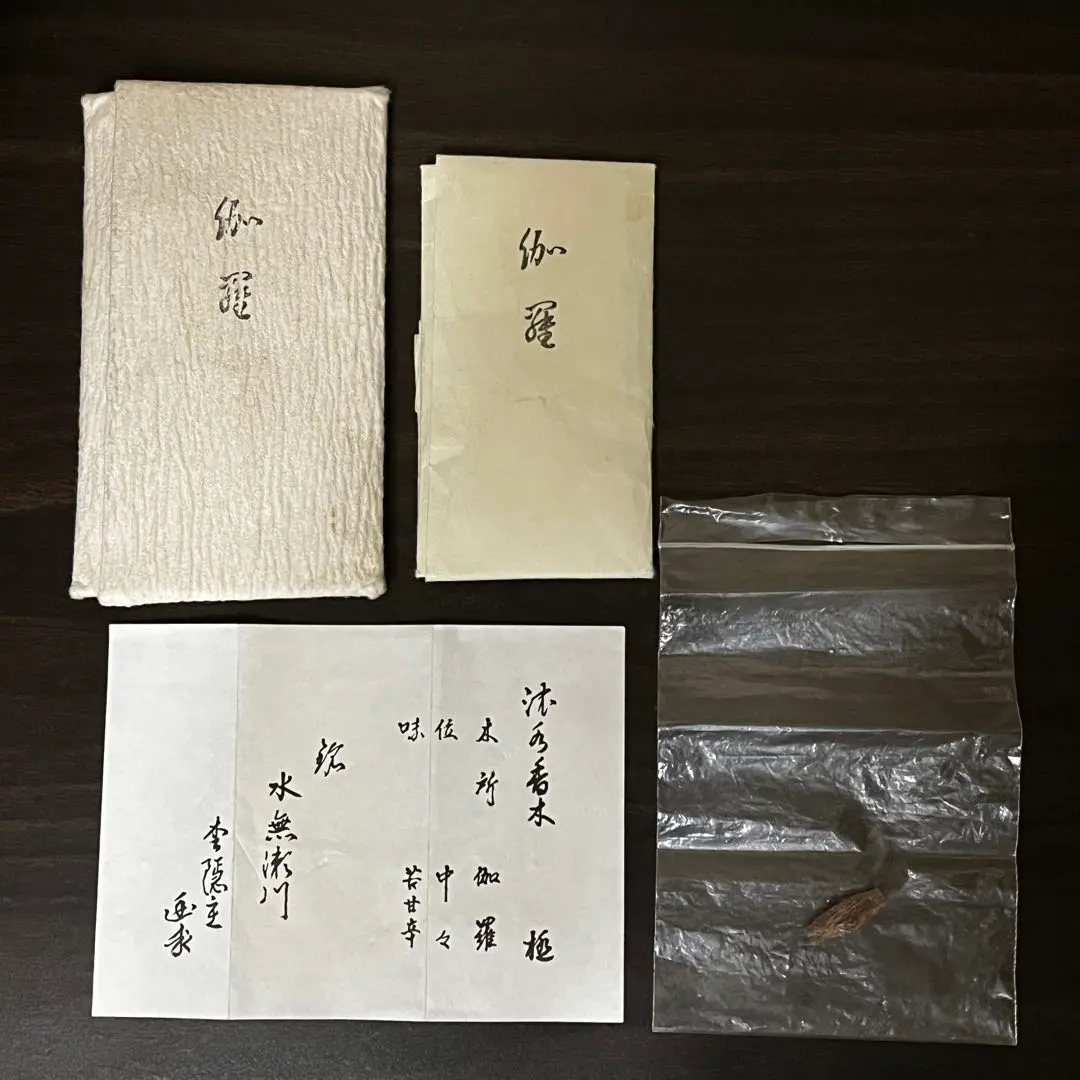 伽羅
伽羅
香木 極
木所 伽羅
位 中々
味 苦甘辛
銘
水無瀬川
隠主